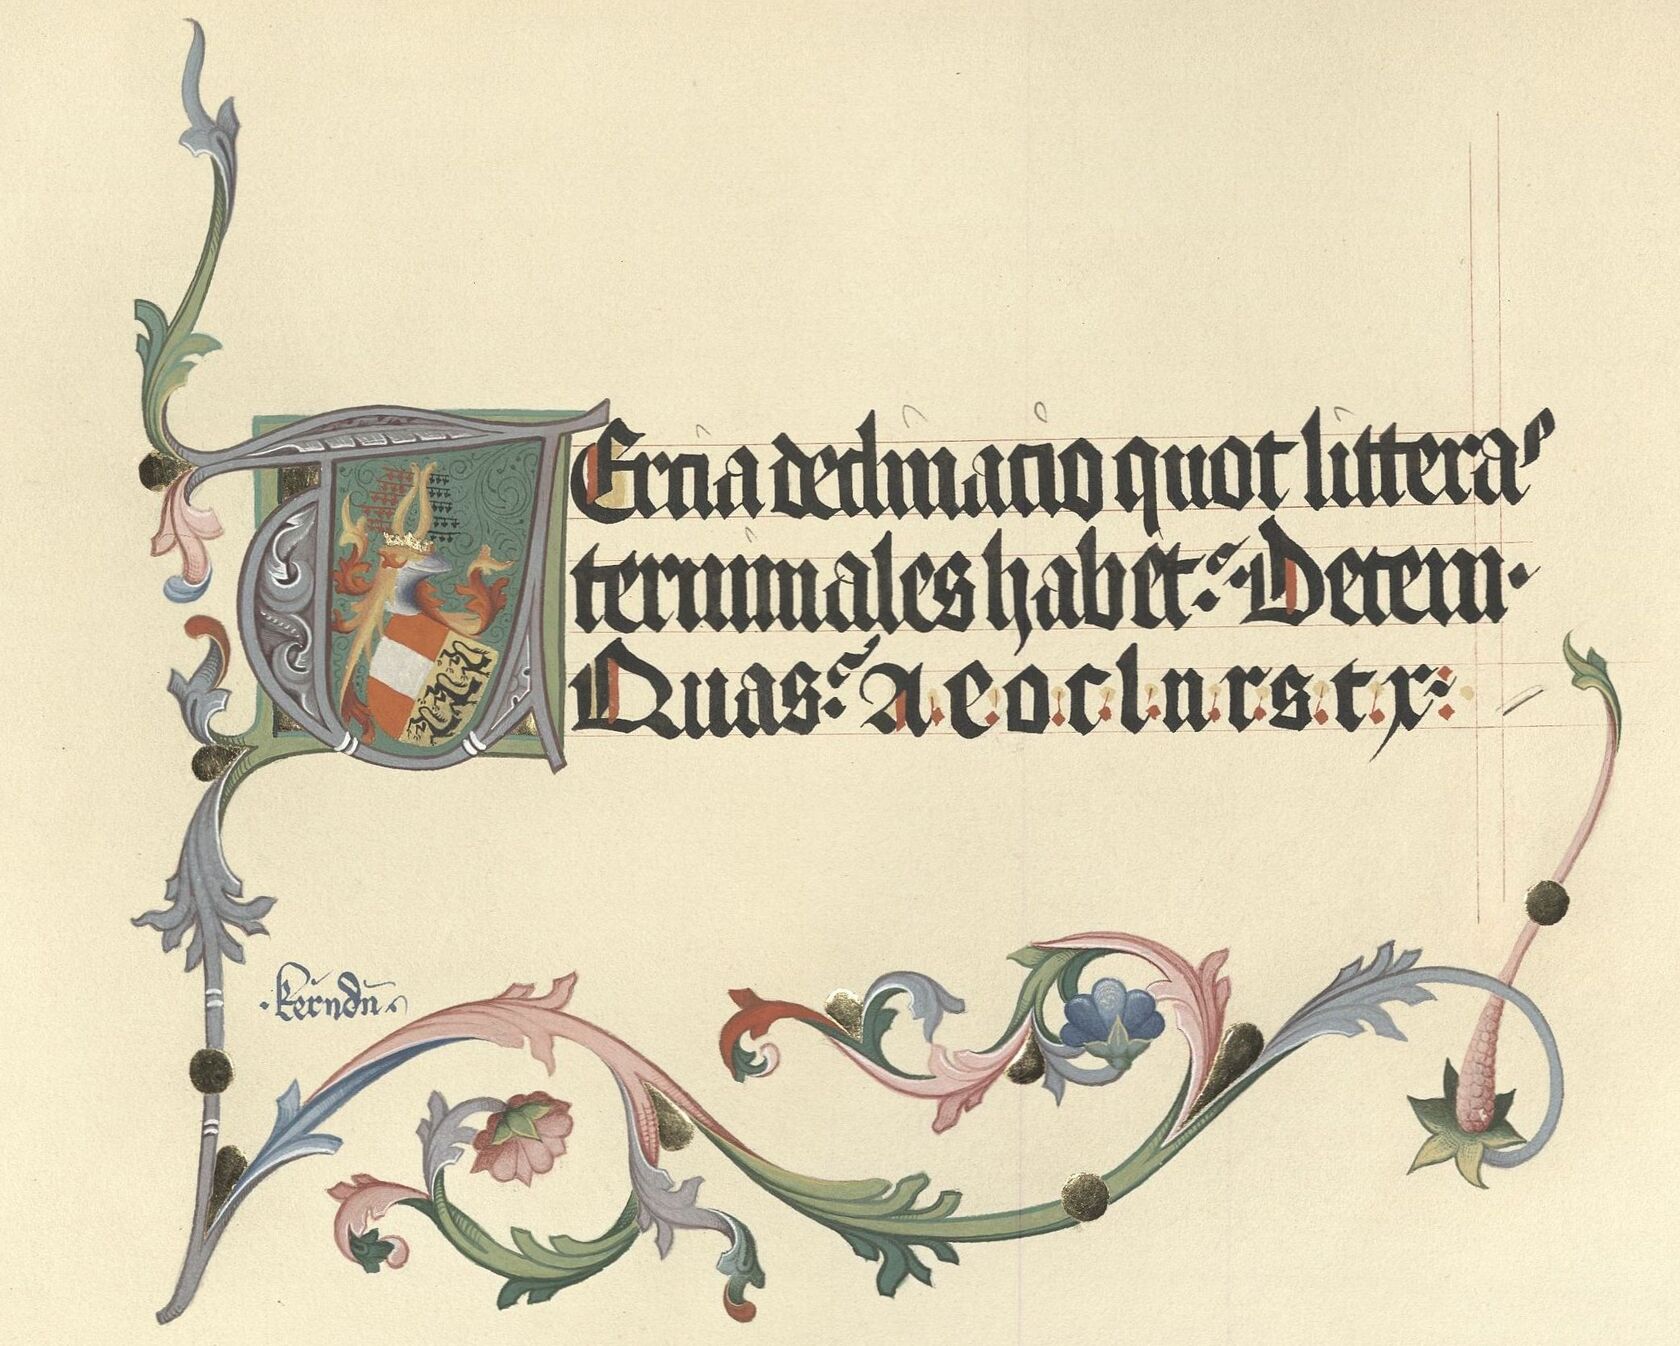 TErcia declinacio quot littera⁹
terminales habet: Decem·
Quas: A·e·o·c·l·n·r·s·t·x:
·kerndn̄·